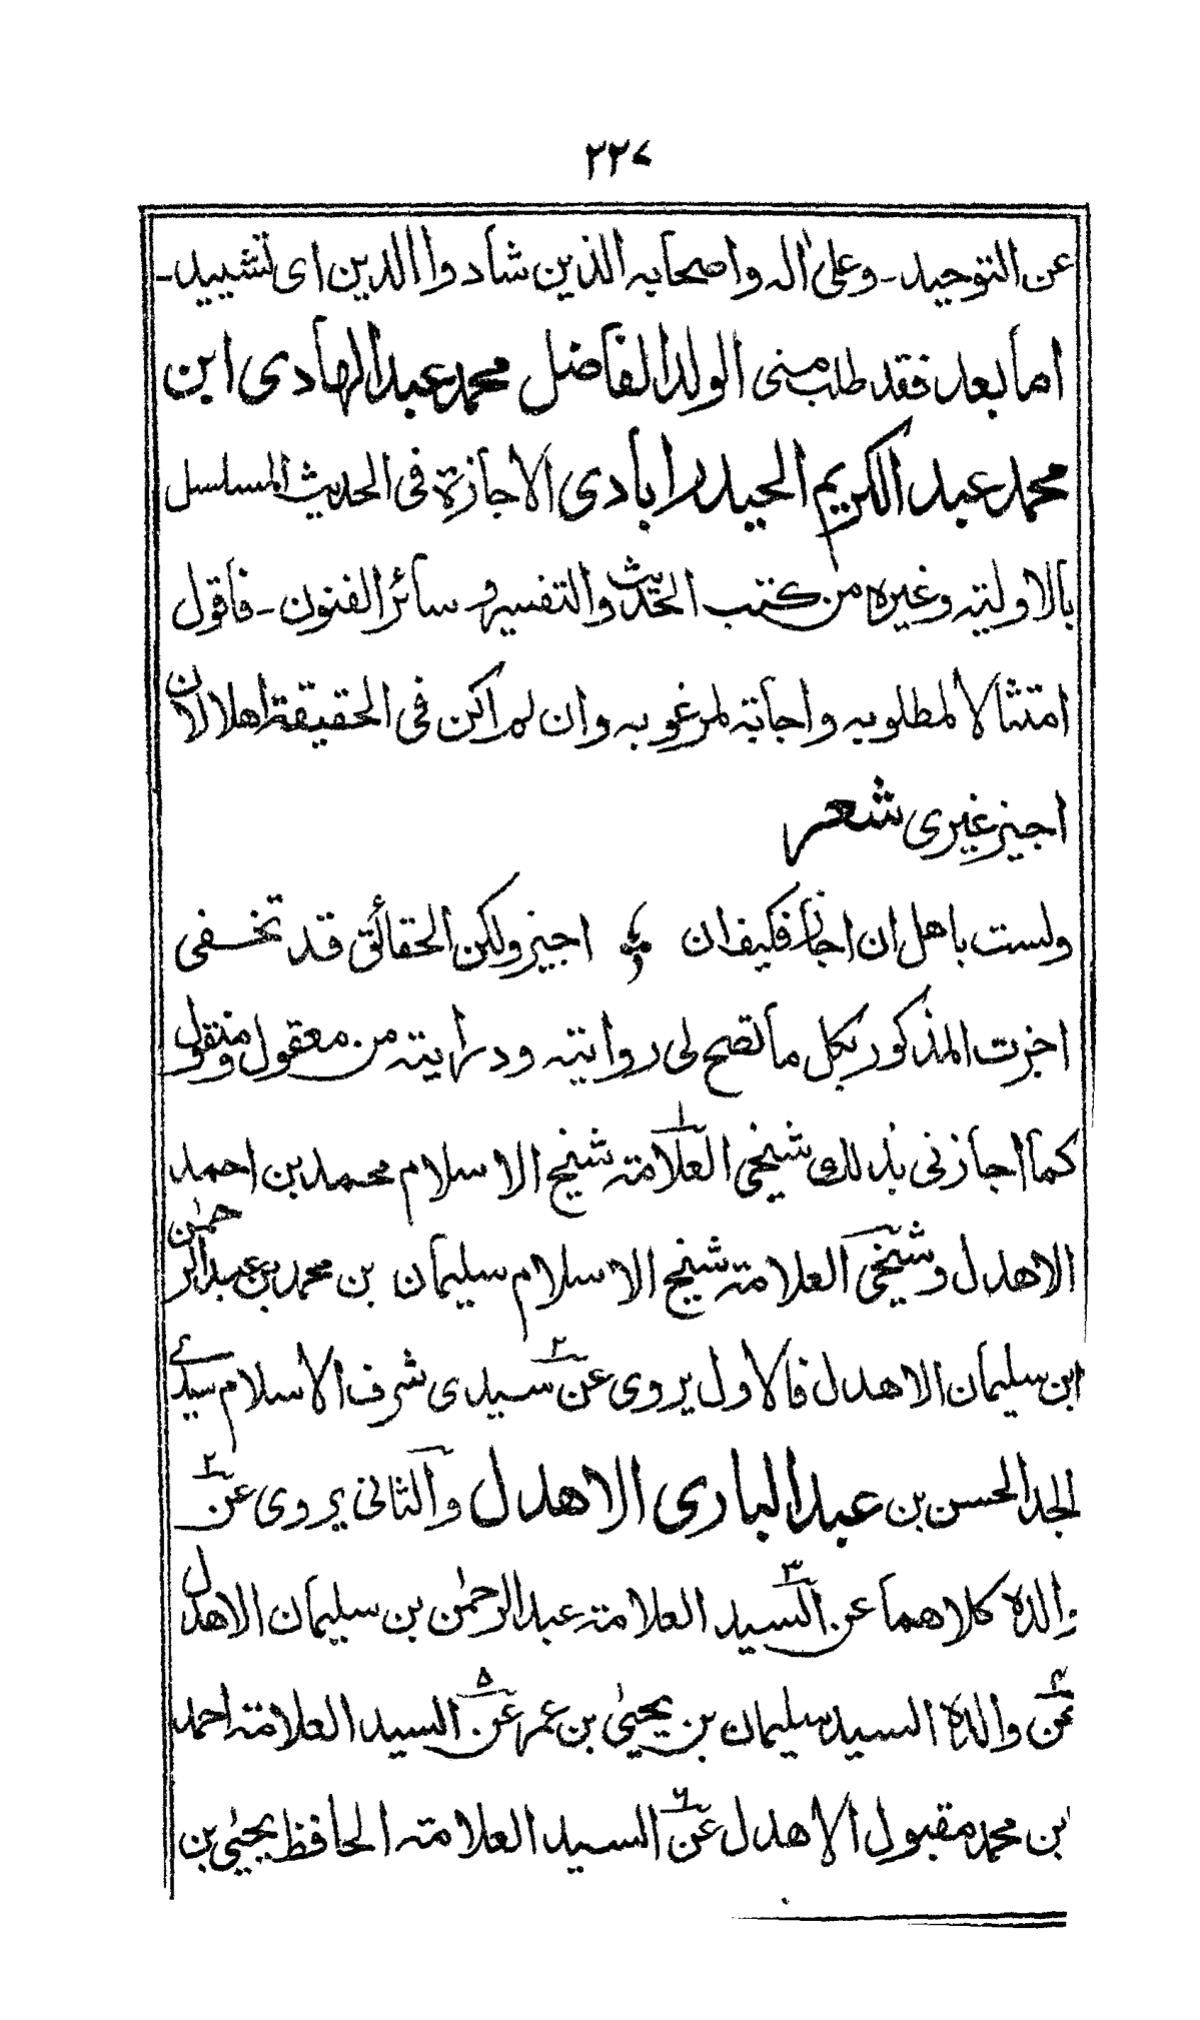 ٢٢٧
عن التوحيد۔ وعلىٰ اٰله واصحابه الذين شادوا الدين اى تشييد۔
اما بعد فقد طلب منى الولد الفاضل محمد عبد الهادى ابن
محمد عبد الكريم الحيدرابادى الاجازة فى الحديث المسلسل
بالاولية وغيره من كتب الحديث والتفسير وسائر الفنون۔ فاقول
امتثالا لمطلوبه واجابة لمرغوبه وان لم اكن فى الحقيقة اهلا لان
اجيز غيرى شعر
ولست باهل ان اجاز فكيف ان ؞ اجيز ولكن الحقائق قد تخفى
اجزت المذكور بكل ما تصح لى روايته ودرايته من معقول ومنقول
كما اجازنى بذلك شيخى العلامة١ شيخ الاسلام محمد بن احمد
الاهدل وشيخى العلامة شيخ الاسلام سليمان بن محمد بن عبد الرحمٰن
ابن سليمان الاهدل فالاول يروى عن٢ سيدى شرف الاسلام سيدے
الجد الحسن بن عبد البارى الاهدل والثانى يروى عن٢
والده كلاهما عن٣ السيد العلامة عبد الرحمٰن بن سليمان الاهدل
عن٤ والده السيد سليمان بن يحيىٰ بن عمر عن٥ السيد العلامة احمد
بن محمد مقبول الاهدل عن٦ السيد العلامة الحافظ يحيىٰ بن